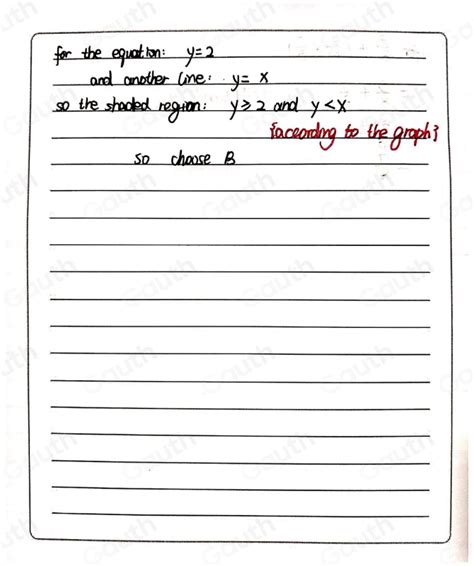 for the equation: y=2
and another line: y= x
so the shaded region: y⩾2 and y<x
{according to the graph}
so choose B